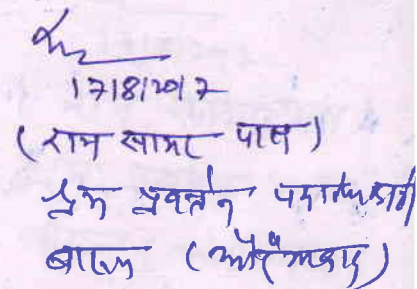 17/8/2017
(राम सागर पाल)
श्रम प्रवर्तन पदाधिकारी
बारूण (औरंगाबाद)